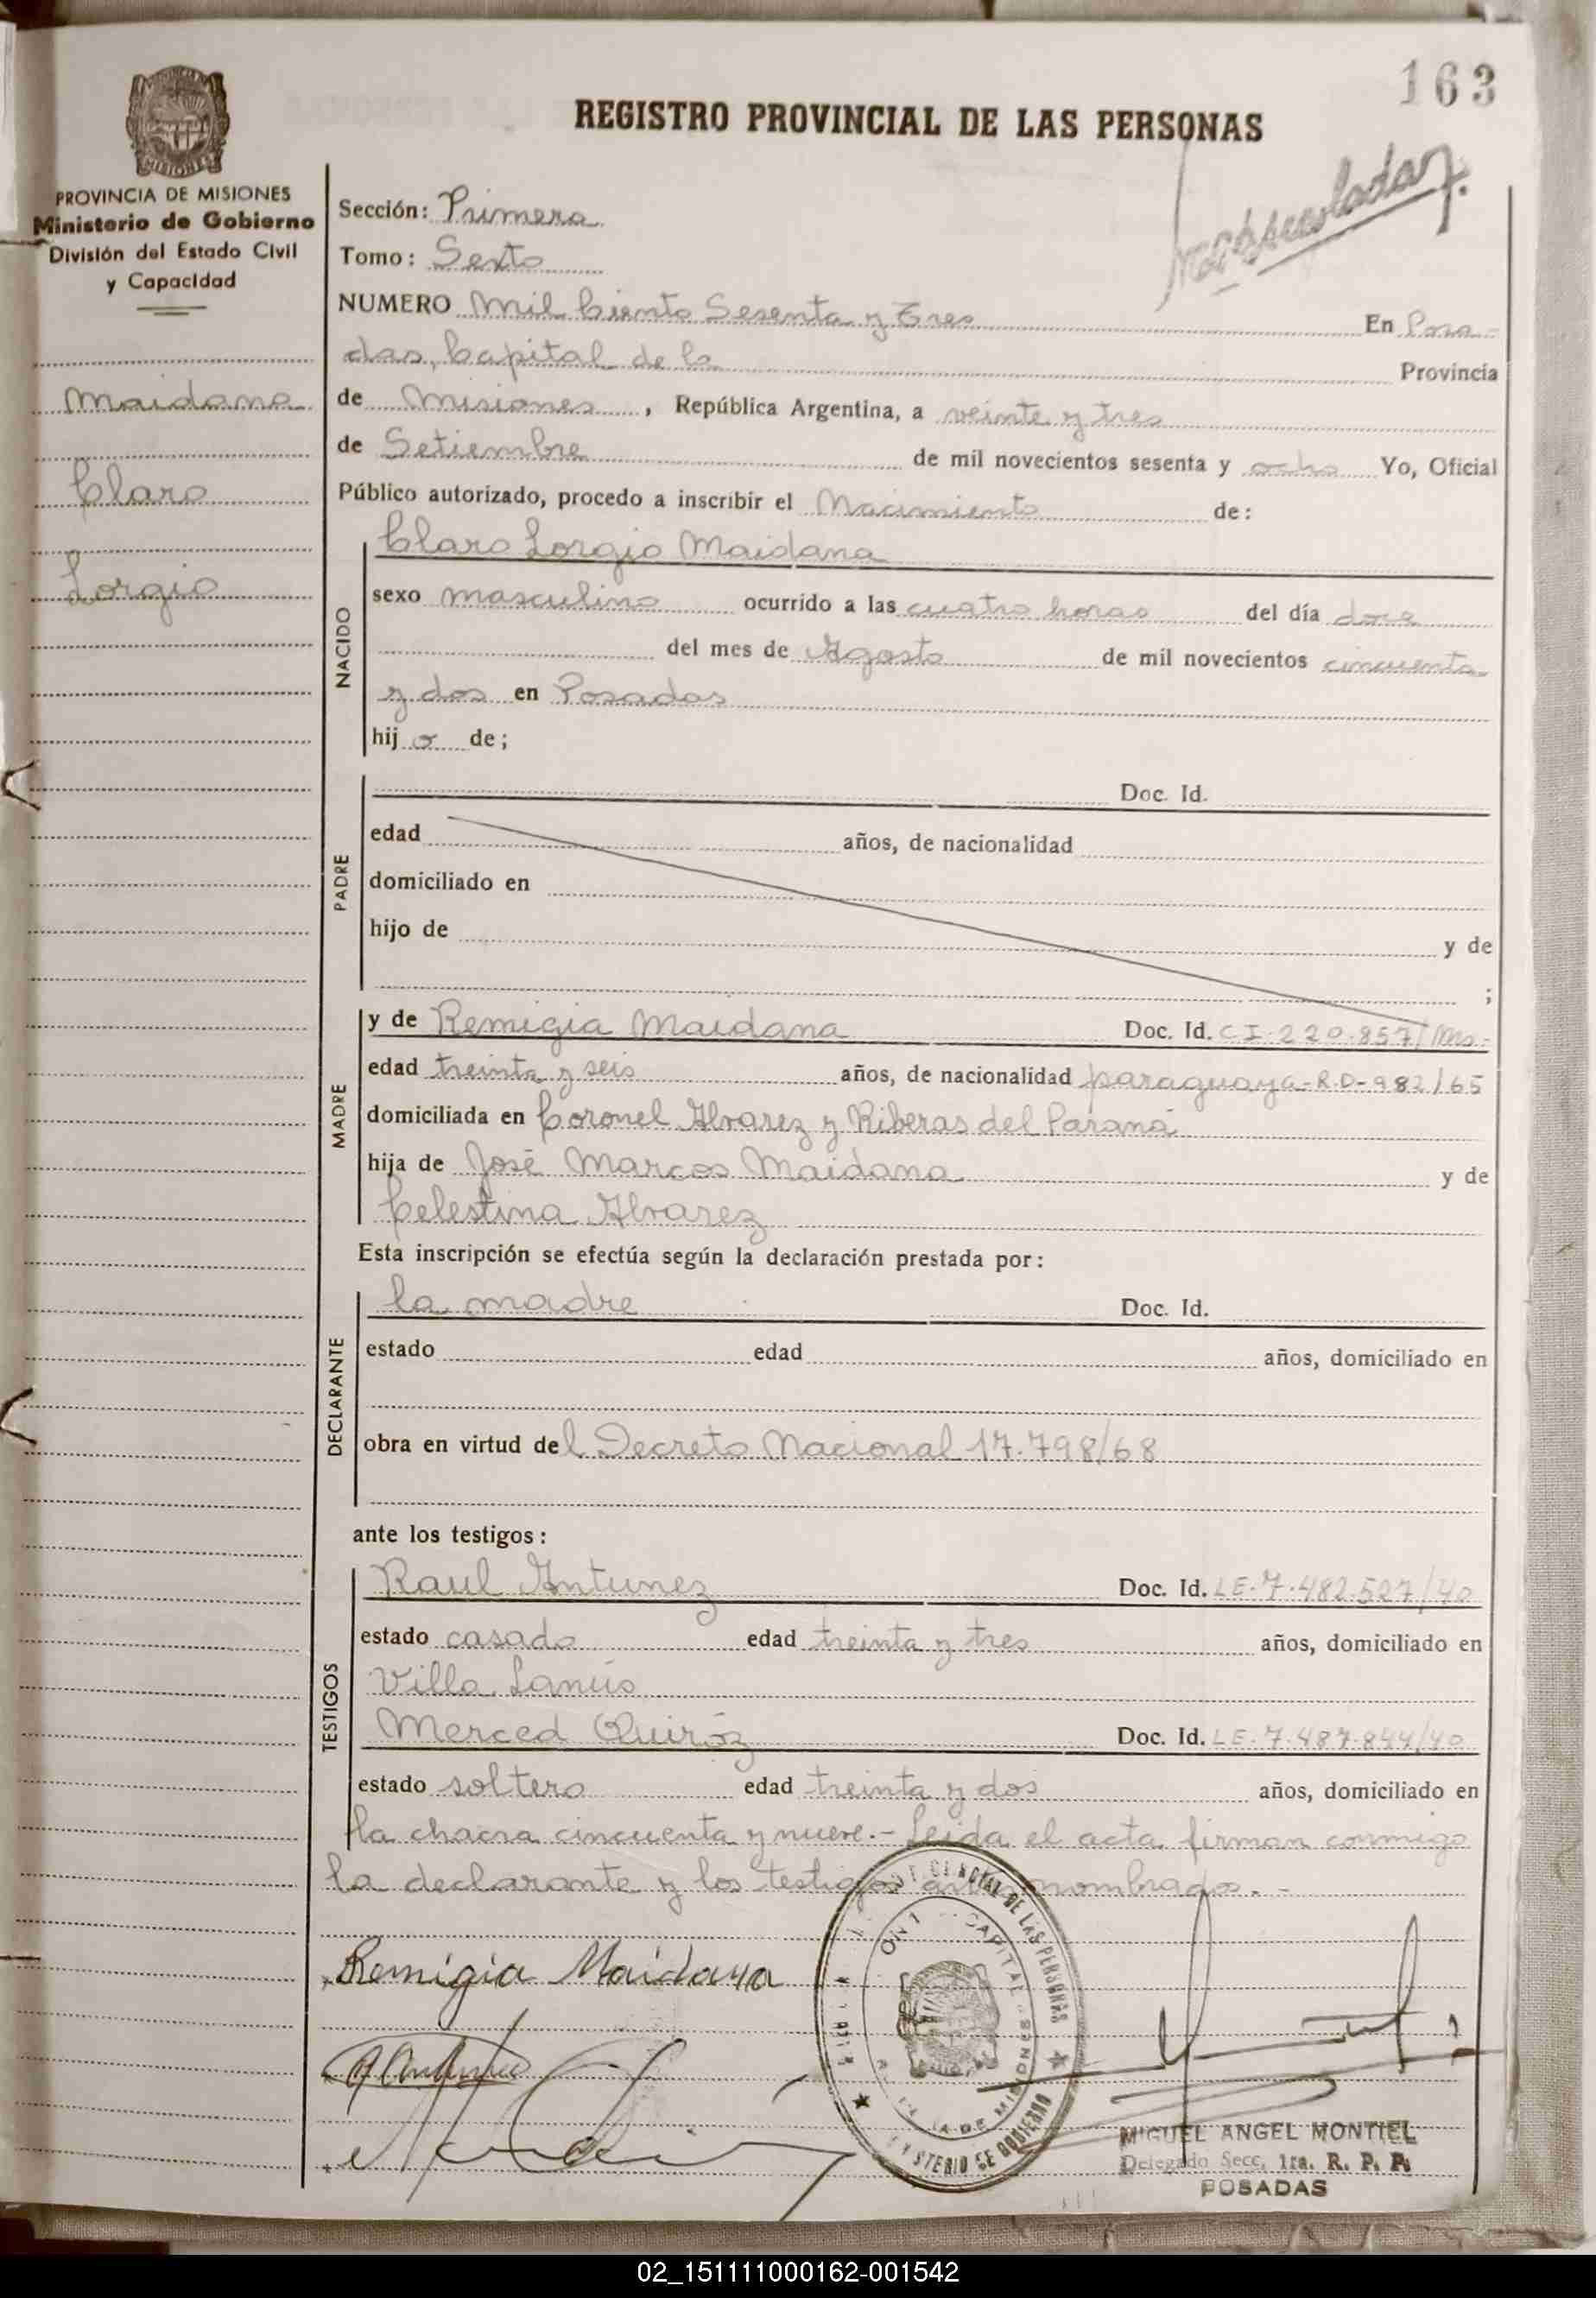 163
REGISTRO PROVINCIAL DE LAS PERSONAS
MISIONES
PROVINCIA DE MISIONES
Ministerio de Gobierno
División del Estado Civil
y Capacidad
Maidana
Claro
Lorgio
Sección: Primera
Tomo: Sexto
NUMERO Mil Ciento Sesenta y Tres En Posa-
das, Capital de la Provincia
de Misiones, República Argentina, a veinte y tres
de Setiembre de mil novecientos sesenta y ocho Yo, Oficial
Público autorizado, procedo a inscribir el Nacimiento de:
NACIDO
Claro Lorgio Maidana
sexo masculino ocurrido a las cuatro horas del día doce
del mes de Agosto de mil novecientos cincuenta
y dos en Posadas
hijo de;
PADRE
Doc. Id.
edad años, de nacionalidad
domiciliado en
hijo de y de
;
MADRE
y de Remigia Maidana Doc. Id. CI-220.857/Ms.-
edad treinta y seis años, de nacionalidad paraguaya-R.D-982/65
domiciliada en Coronel Alvarez y Riberas del Paraná
hija de José Marcos Maidana y de
Celestina Alvarez
Esta inscripción se efectúa según la declaración prestada por:
DECLARANTE
la madre Doc. Id.
estado edad años, domiciliado en
obra en virtud del Decreto Nacional 17.798/68
ante los testigos:
TESTIGOS
Raul Antunez Doc. Id. LE-7.482.527/40
estado casado edad treinta y tres años, domiciliado en
Villa Lanús
Merced Quiróz Doc. Id. LE-7.487.844/40
estado soltero edad treinta y dos años, domiciliado en
la chacra cincuenta y nueve.- Leida el acta, firman conmigo
la declarante y los testigos nombrados.-
Remigia Maidana
DE LAS PERSONAS
CAPITAL
DE MISIONES
DE GOBIERNO
MIGUEL ANGEL MONTIEL
Delegado Secc. 1ra. R. P. P.
POSADAS
02_151111000162-001542